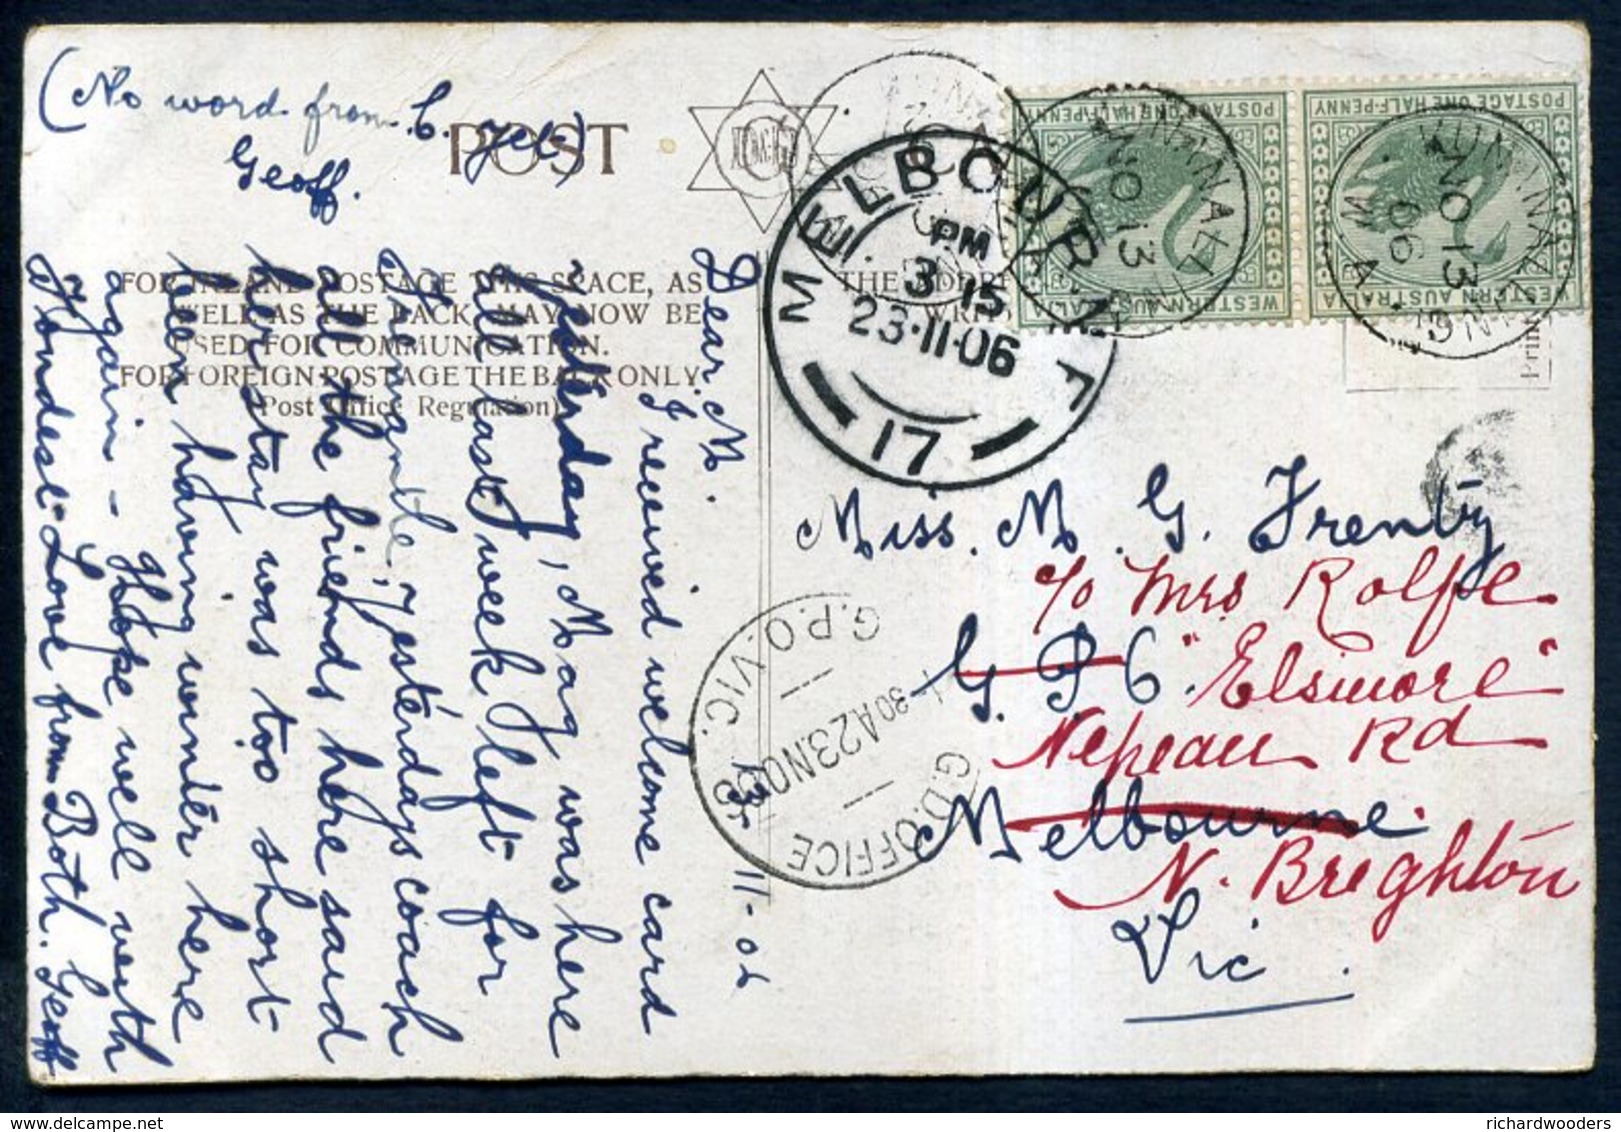 (No word from C. yet)
Geoff.
POST
FOR INLAND POSTAGE THIS SPACE, AS
WELL AS THE BACK, MAY NOW BE
USED FOR COMMUNICATION.
FOR FOREIGN POSTAGE THE BACK ONLY.
(Post Office Regulation)
13-11-06
Dear M.
I received welcome card
yesterday, Mag was here
all last week & left for
yesterdays coach
all the friends here said
her stay was too short
been having winter here
again - Hope well with
Fondest Love from Both. Geoff
POSTAGE ONE HALF-PENNY
WESTERN AUSTRALIA
POSTAGE ONE HALF-PENNY
WESTERN AUSTRALIA
NO 13
06
W A
NO 13
MELBOURNE
PM
3 15
23·11·06
17
G.P.O. VIC.
4-30A 23 NO 06
G.D. OFFICE
Miss. M. G. Frenby
c/o Mrs Rolfe
G. P. O.
"Elsinore"
Nepean Rd
Melbourne.
N. Brighton
Vic.
richardwooders